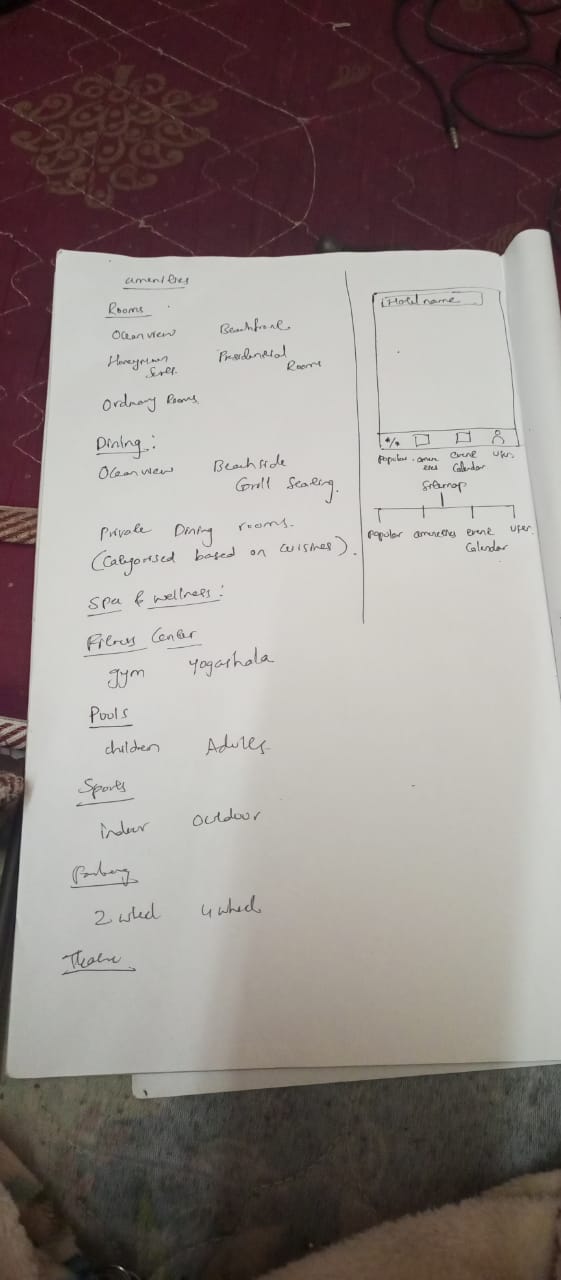 amenities
Rooms
Ocean view Beachfront
Honeymoon Suites Presidencial Rooms
Ordinary Rooms.
Dining:
Ocean view Beach side Grill Seating.
Private Dining rooms.
(Categorised based on cuisines).
Spa & wellness:
Fitness Center
gym yogashala
Pools
children Adults
Sports
indoor outdoor
Parking
2 wheel 4 wheel
Theatre
Hotel name
popular amenities event Calendar User
Sitemap
popular amenities event Calendar User